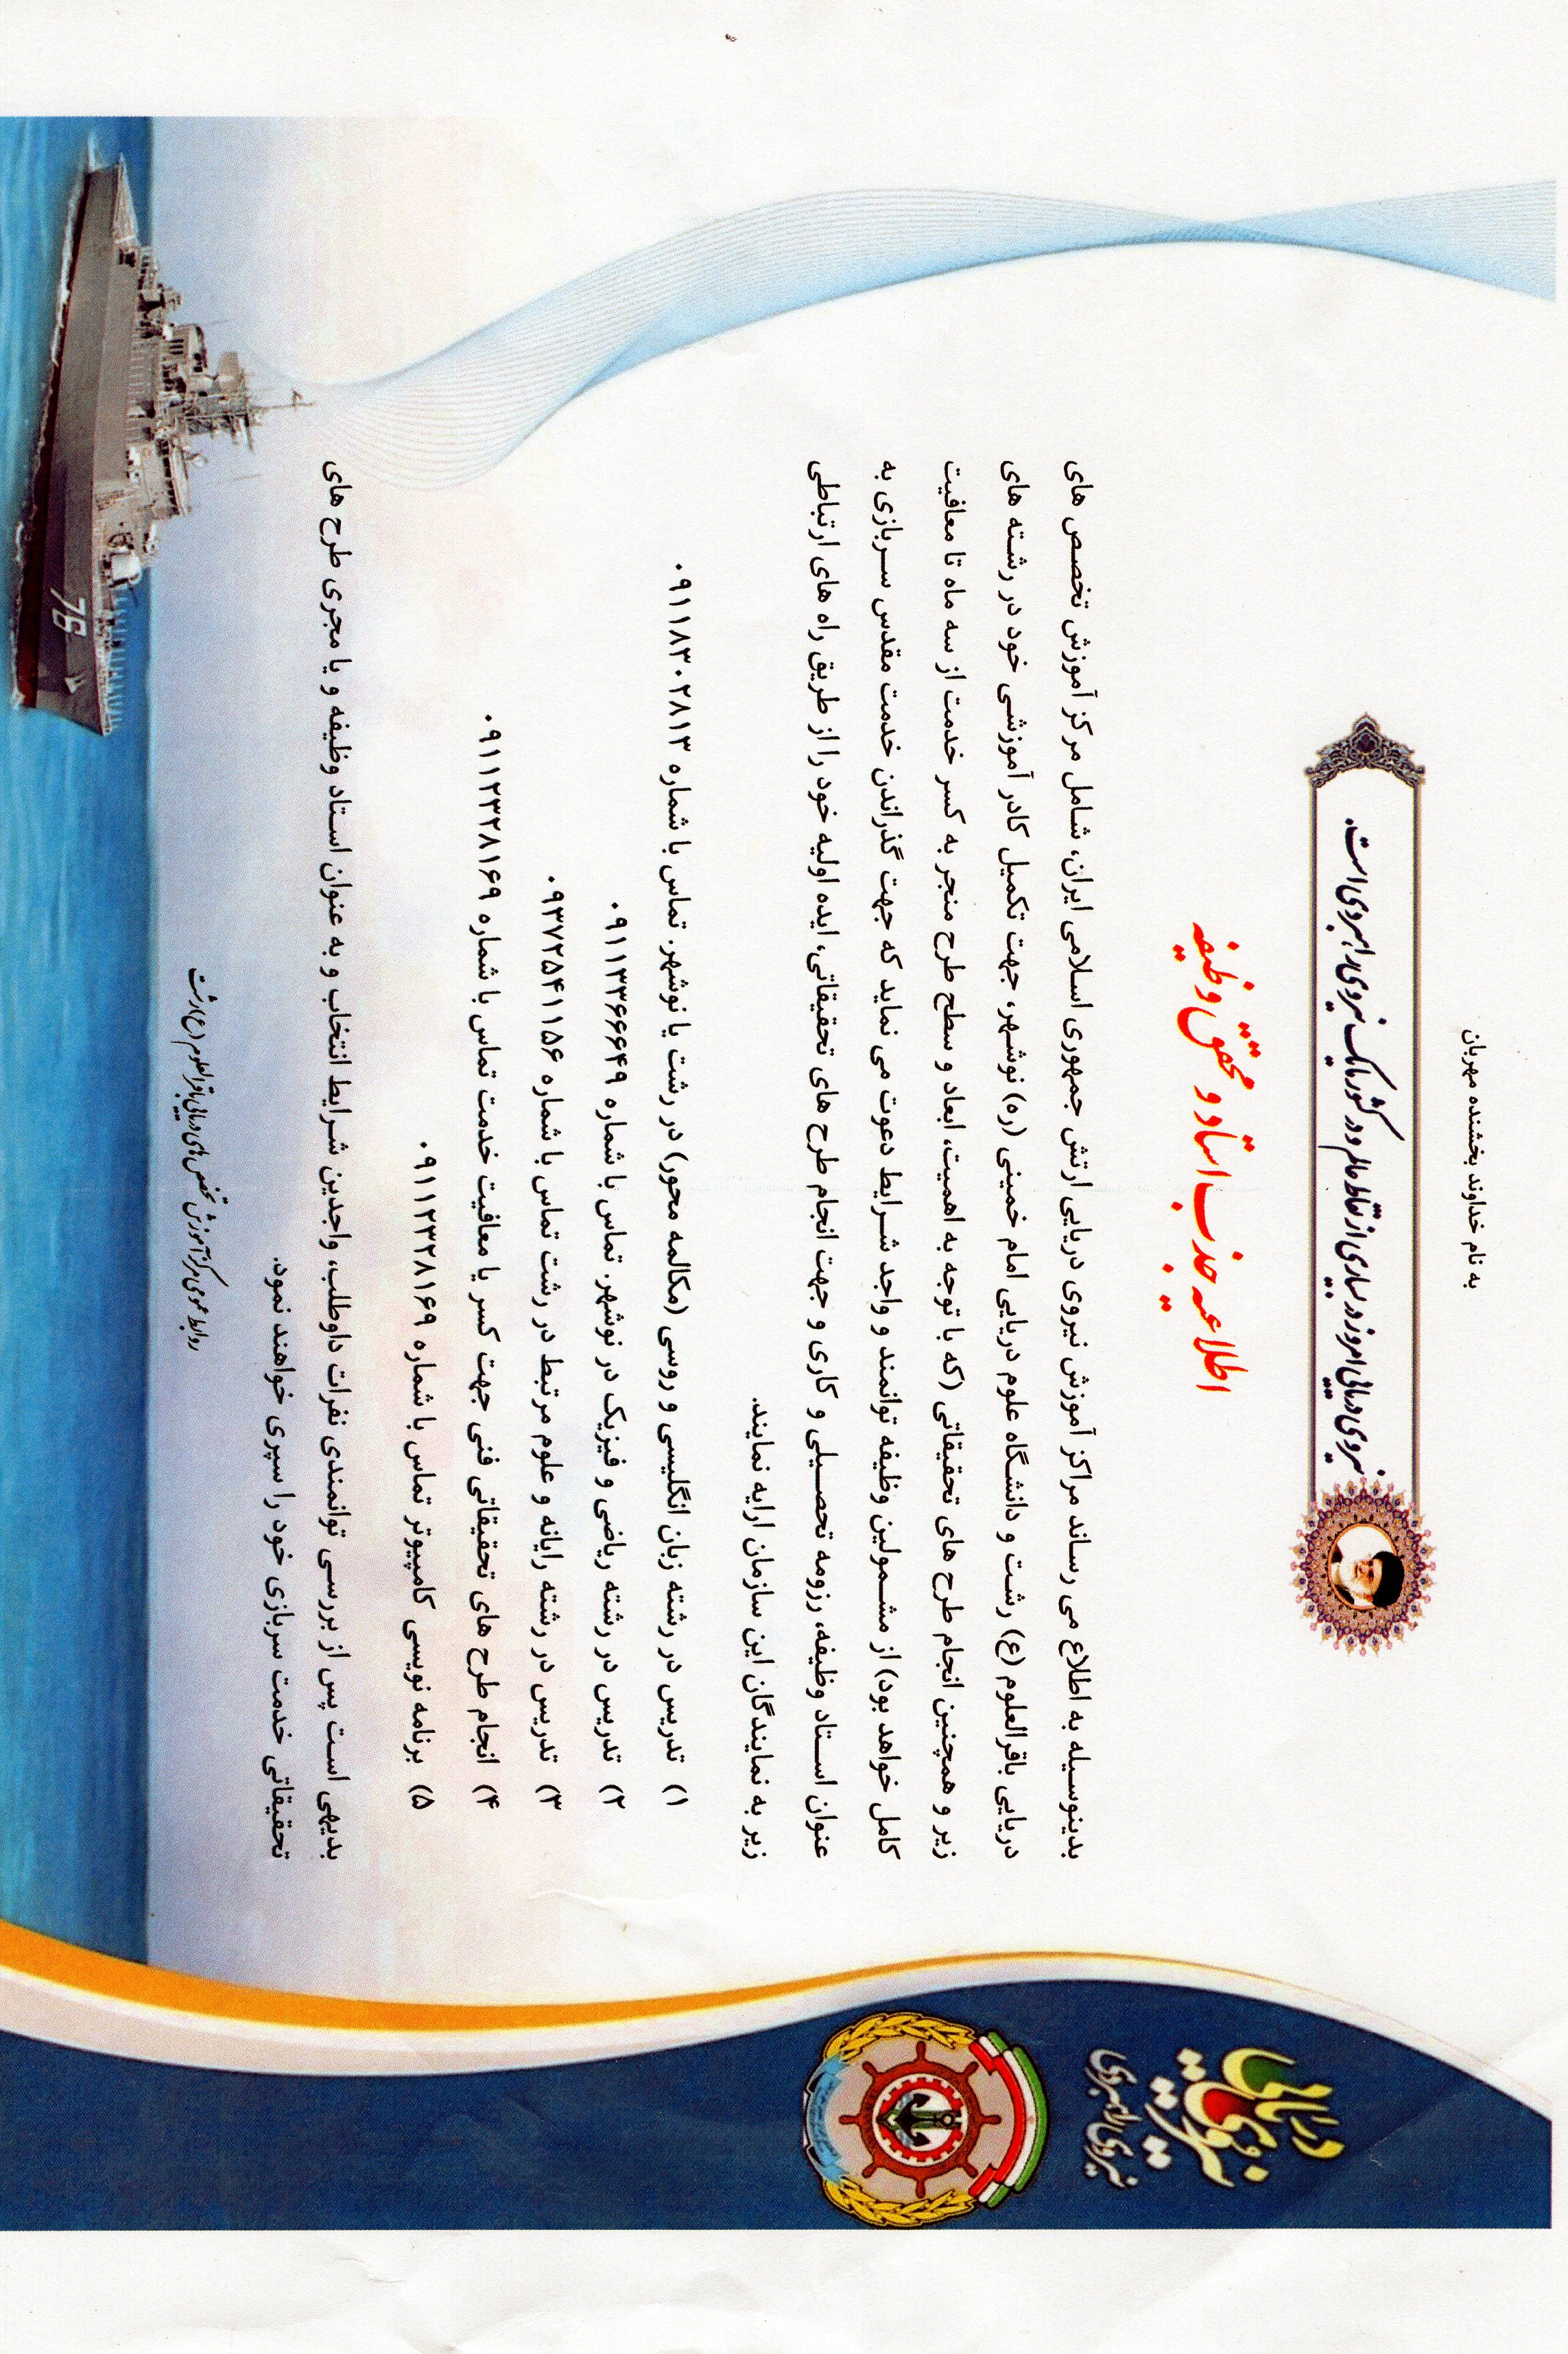 به نام خداوند بخشنده مهربان
نیروی دریایی امروز در بسیاری از نقاط عالم و در کشور ما یک نیروی راهبردی است.
اطلاعیه جذب استاد و محقق وظیفه
بدینوسیله به اطلاع می رساند مراکز آموزش نیروی دریایی ارتش جمهوری اسلامی ایران، شامل مرکز آموزش تخصص های
دریایی باقرالعلوم (ع) رشت و دانشگاه علوم دریایی امام خمینی (ره) نوشهر، جهت تکمیل کادر آموزشی خود در رشته های
زیر و همچنین انجام طرح های تحقیقاتی (که با توجه به اهمیت، ابعاد و سطح طرح منجر به کسر خدمت از سه ماه تا معافیت
کامل خواهد بود) از مشمولین وظیفه توانمند و واجد شرایط دعوت می نماید که جهت گذراندن خدمت مقدس سربازی به
عنوان استاد وظیفه، رزومه تحصیلی و کاری و جهت انجام طرح های تحقیقاتی، ایده اولیه خود را از طریق راه های ارتباطی
زیر به نمایندگان این سازمان ارایه نمایند.
۱) تدریس در رشته زبان انگلیسی و روسی (مکالمه محور) در رشت یا نوشهر. تماس با شماره ۰۹۱۱۸۳۰۲۸۱۳
۲) تدریس در رشته ریاضی و فیزیک در نوشهر. تماس با شماره ۰۹۱۱۳۳۶۶۶۴۹
۳) تدریس در رشته رایانه و علوم مرتبط در رشت تماس با شماره ۰۹۳۷۲۵۴۱۱۵۶
۴) انجام طرح های تحقیقاتی فنی جهت کسر یا معافیت خدمت تماس با شماره ۰۹۱۱۲۳۲۸۱۶۹
۵) برنامه نویسی کامپیوتر تماس با شماره ۰۹۱۱۲۳۲۸۱۶۹
بدیهی است پس از بررسی توانمندی نفرات داوطلب، واجدین شرایط انتخاب و به عنوان استاد وظیفه و یا مجری طرح های
تحقیقاتی خدمت سربازی خود را سپری خواهند نمود.
روابط عمومی مرکز آموزش تخصص های دریایی باقرالعلوم (ع) رشت
نیروی دریایی
نیروی راهبردی
78